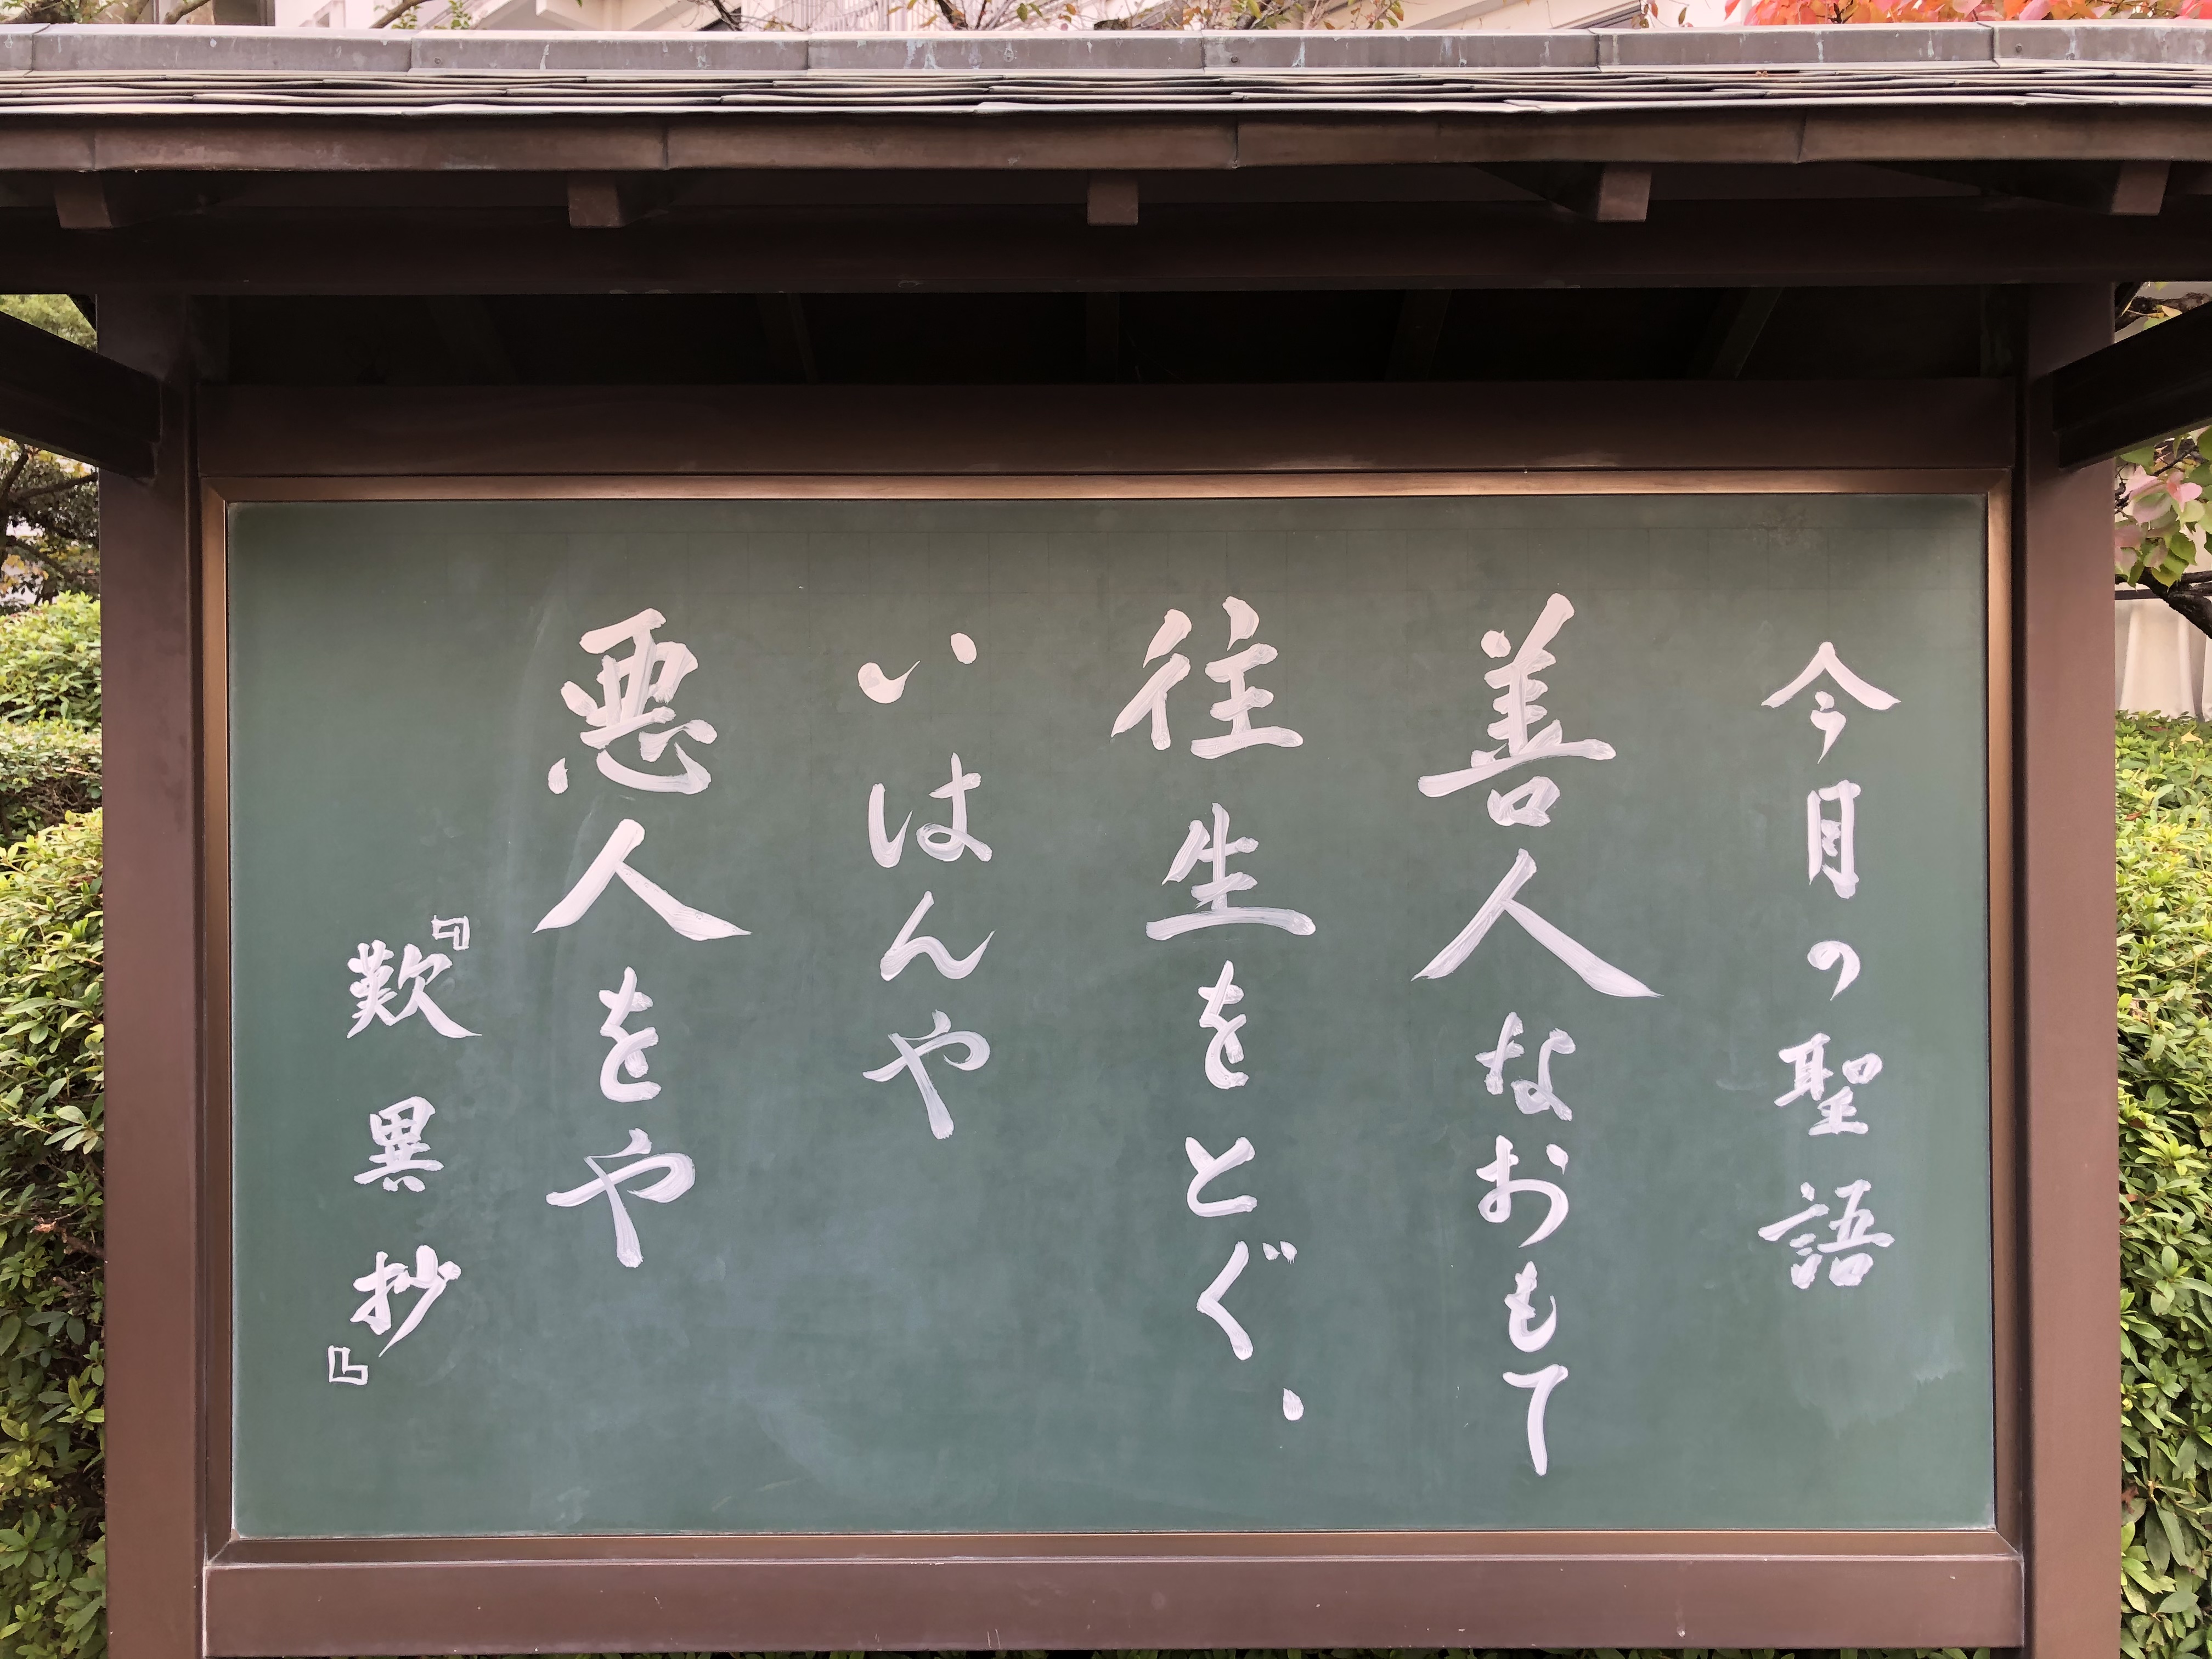 今月の聖語
善人なおもて
往生をとぐ、
いはんや
悪人をや
『歎異抄』